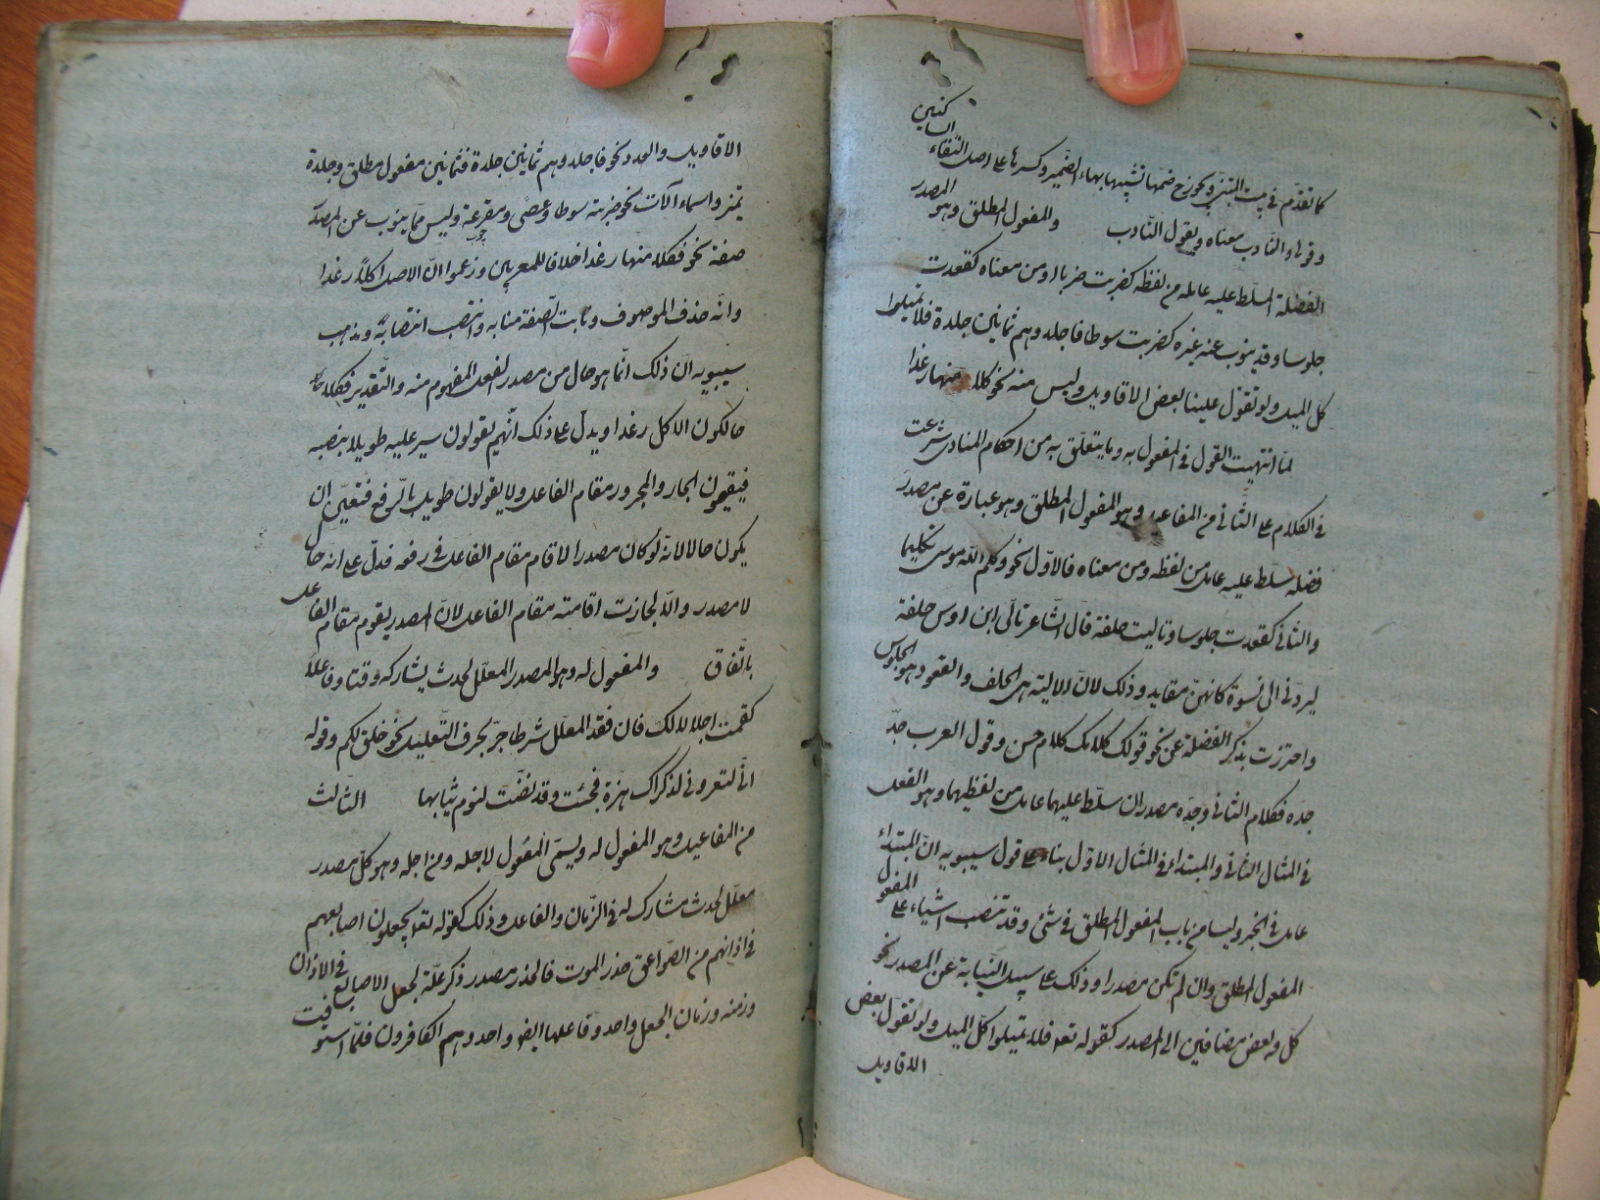 كما تقدّم في بيت المتنبي ويجوز ح ضمها تشبيها بهاء الضمير وكسرها على اصل التقاء الساكنين
وقولى والنادب معناه ويقول النادب والمفعول المطلق وهو المصدر
الفضلة المسلّط عليه عامله من لفظه كضربت ضربا او من معناه كقعدت
جلوسا وقد ينوب عنه غيره كضربت سوطا فاجلدوهم ثمانين جلدة فلا تميلوا
كل الميل ولو تقول علينا بعض الاقاويل وليس منه نحو كلا منها رغدا
لمّا انتهيت القول في المفعول به وما يتعلّق به من احكام المنادى شرعت
في الكلام على الثاني من المفاعيل وهو المفعول المطلق وهو عبارة عن مصدر
فضلة سلّط عليه عامل من لفظه ومن معناه فالاوّل نحو وكلّم اللّه موسى تكليما
والثاني كقعدت جلوسا وتاليت حلفة قال الشّاعر تالّى ابن اوس حلفة
ليردّنى الى نسوة كانهنّ مفايد وذلك لانّ الالية هى الحلف والقعود هو الجلوس
واحترزت بذكر الفضلة عن نحو قولك كلامك كلام حسن وقول العرب جدّ
جده فكلام الثاني وجدّه مصدران سلّط عليهما عامل من لفظهما وهو الفعل
في المثال الثاني والمبتداء في المثال الاوّل بناء على قول سيبويه انّ المبتداء
عامل في الخبر وليسا من باب المفعول المطلق في شئ وقد تنصب اشياء على المفعول
المفعول المطلق وان لم تكن مصدرا وذلك على سبيل النّيابة عن المصدر نحو
كل وبعض مضافين الى المصدر كقوله تعه فلا تميلوا كلّ الميل ولو تقول بعض
الاقاويل
الاقاويل والعدد نحو فاجلدوهم ثمانين جلدة فثمانين مفعول مطلق وجلدة
تميز واسماء آلات نحو ضربته سوطا وعصى ومقرعة وليس ممّا ينوب عن المصدر
چوب
صفة نحو فكلا منها رغدا خلافا للمعربين وزعموا انّ الاصل اكلاً رغدا
وانّه حذف الموصوف ونابت الصّفة منابه وانتصب انتصابه ومذهب
سيبويه ان ذلك انّما هو حال من مصدر الفعل المفهوم منه والتّقدير فكلا
حالكون الاكل رغدا ويدلّ على ذلك انّهم يقولون سير عليه طويلا بنصبه
فيقيمون الجار والمجرور مقام الفاعل ولا يقولون طويل بالرّفع فتعيّن ان
يكون حالا لانّه لو كان مصدرا لاقام مقام الفاعل في رفعه فدلّ على انه حال
لا مصدر والّا لجازت اقامته مقام الفاعل لانّ المصدر يقوم مقام الفاعل
باتّفاق والمفعول له وهو المصدر المعلّل لحدث يشاركه وقتا وفاعلا
كقمت اجلالا لك فان فقد المعلّل شرطا جرّ بحرف التّعليل نحو خلق لكم وقوله
انّى لتعرونى لذكراك هزة فجئت وقد نضّت لنوم ثيابها الثالث
من المفاعيل وهو المفعول له ويسمّى المفعول لاجله ومن اجله وهو كلّ مصدر
معلّل لحدث مشارك له في الزّمان والفاعل وذلك كقوله تعه يجعلون اصابعهم
في اذانهم من الصّواعق حذر الموت فالحذر مصدر ذكر علّة لجعل الاصابع في الاذان
وزمنه وزمان الجعل واحد وفاعلها ايضو واحد وهم الكافرون فلمّا استوفيت